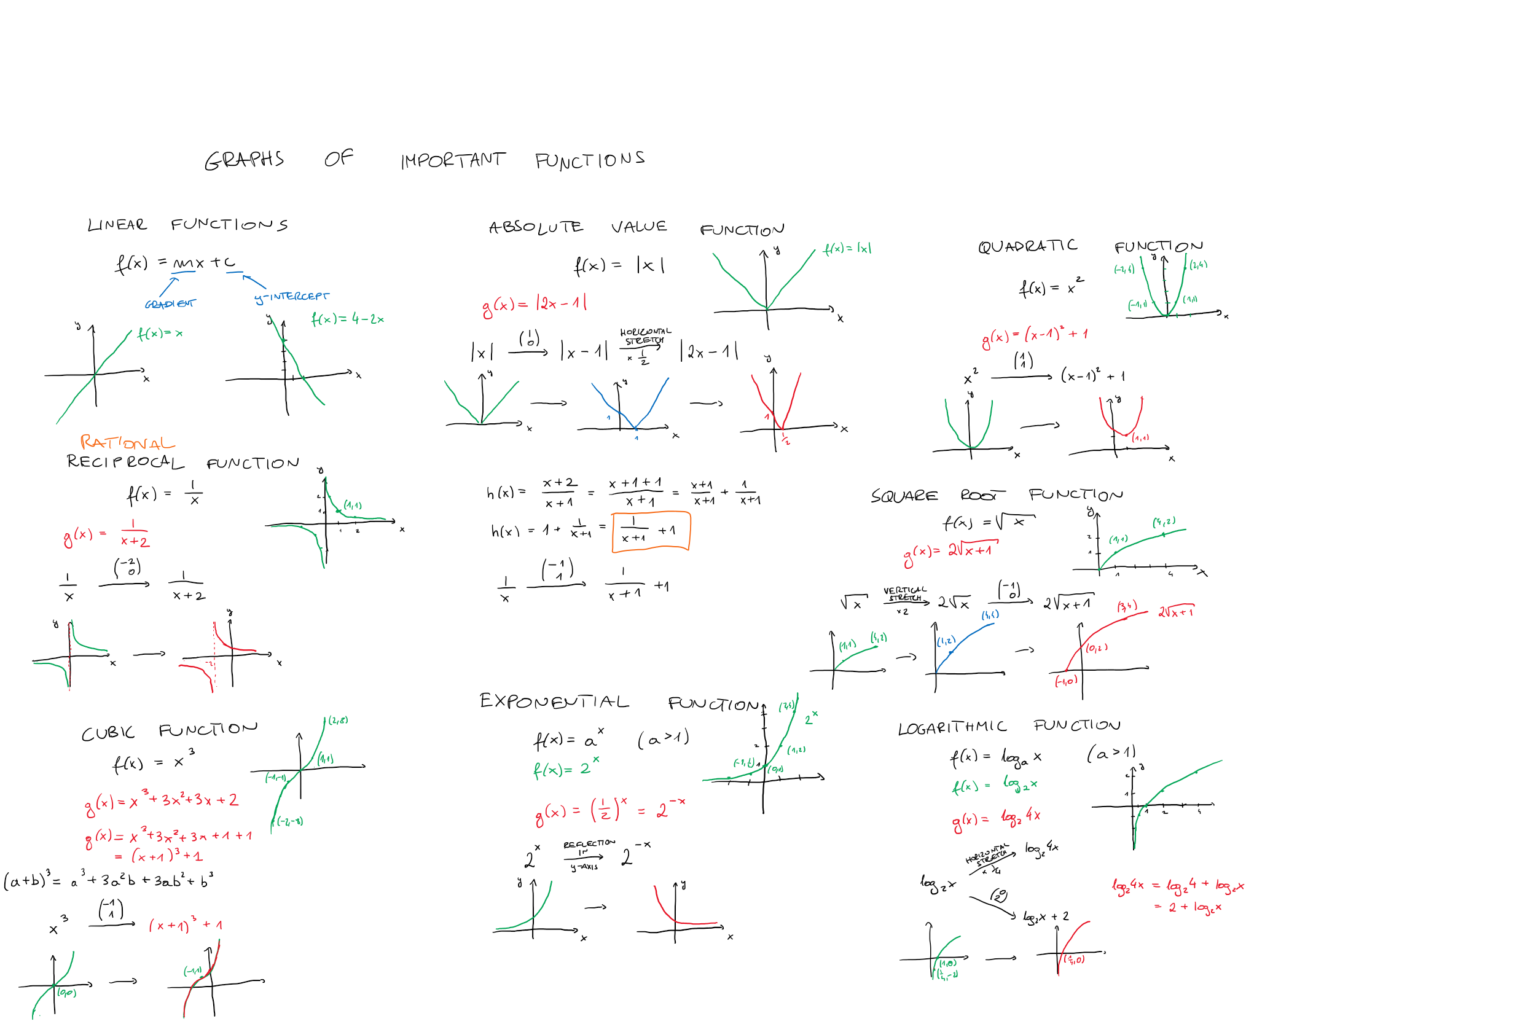 GRAPHS OF IMPORTANT FUNCTIONS
LINEAR FUNCTIONS
f(x) = mx + c
GRADIENT
y-INTERCEPT
f(x) = x
f(x) = 4-2x
y
x
y
x
RATIONAL
RECIPROCAL FUNCTION
f(x) = 1/x
g(x) = 1/(x+2)
(1,1)
2
1
1 2
y
x
1/x (-2 0) 1/(x+2)
y
x
-2
y
x
CUBIC FUNCTION
f(x) = x³
(2,8)
(1,1)
(-1,-1)
(-2,-8)
x
g(x) = x³+3x²+3x+2
g(x) = x³+3x²+3x+1+1
= (x+1)³+1
(a+b)³ = a³+3a²b+3ab²+b³
x³ (-1 1) (x+1)³+1
(0,0)
(-1,1)
ABSOLUTE VALUE FUNCTION
f(x) = |x|
f(x) = |x|
y
x
g(x) = |2x-1|
|x| (1 0) |x-1| HORIZONTAL STRETCH x 1/2 |2x-1|
y
x
y
1
1
x
y
1
1/2
x
h(x) = (x+2)/(x+1) = (x+1+1)/(x+1) = (x+1)/(x+1) + 1/(x+1)
h(x) = 1 + 1/(x+1) = 1/(x+1) + 1
1/x (-1 1) 1/(x+1) + 1
EXPONENTIAL FUNCTION
f(x) = aˣ (a>1)
f(x) = 2ˣ
2ˣ
(1,2)
(0,1)
g(x) = (1/2)ˣ = 2⁻ˣ
2ˣ REFLECTION IN y-AXIS 2⁻ˣ
y
x
y
x
QUADRATIC FUNCTION
f(x) = x²
(-2,4)
(2,4)
(-1,1)
(1,1)
y
x
g(x) = (x-1)²+1
x² (1 1) (x-1)²+1
y
x
y
(1,1)
x
SQUARE ROOT FUNCTION
f(x) = √x
g(x) = 2√(x+1)
y
(1,1)
(4,2)
2
1
1
4
x
√x VERTICAL STRETCH x2 2√x (-1 0) 2√(x+1)
(1,1)
(4,2)
(1,2)
(4,4)
(3,4)
2√(x+1)
(0,2)
(-1,0)
LOGARITHMIC FUNCTION
f(x) = logₐx (a>1)
f(x) = log₂x
g(x) = log₂4x
2
1
1 2 4
HORIZONTAL STRETCH x 1/4
log₂4x
log₂x
(0 2)
log₂x + 2
log₂4x = log₂4 + log₂x
= 2 + log₂x
(1,0)
(1/4,0)